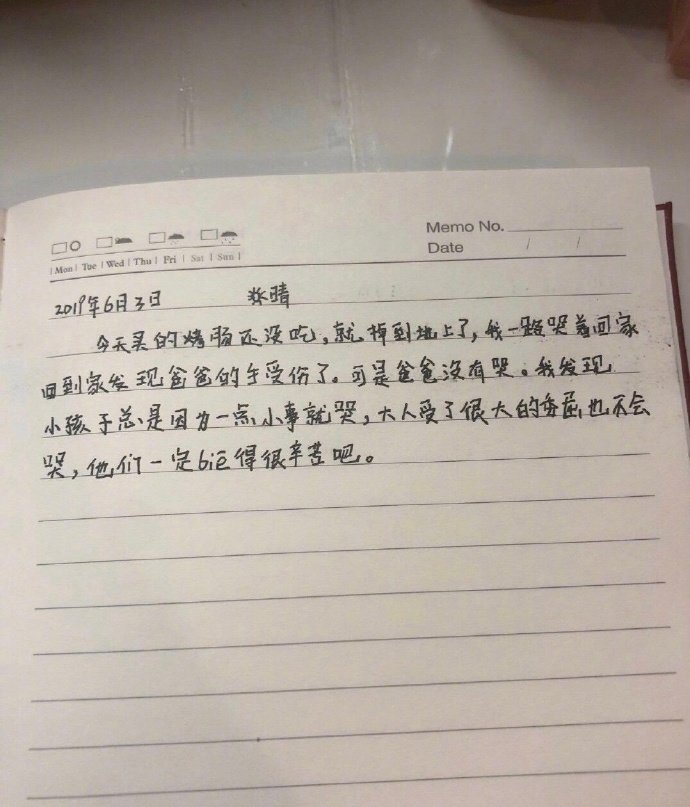 Memo No.
Date / /
Mon Tue Wed Thu Fri Sat Sun
2019年6月3日 晴
今天买的烤肠还没吃，就掉到地上了，我一路哭着回家
回到家发现爸爸的手受伤了。可是爸爸没有哭。我发现
小孩子总是因为一点小事就哭，大人受了很大的委屈也不会
哭，他们一定biē得很辛苦吧。